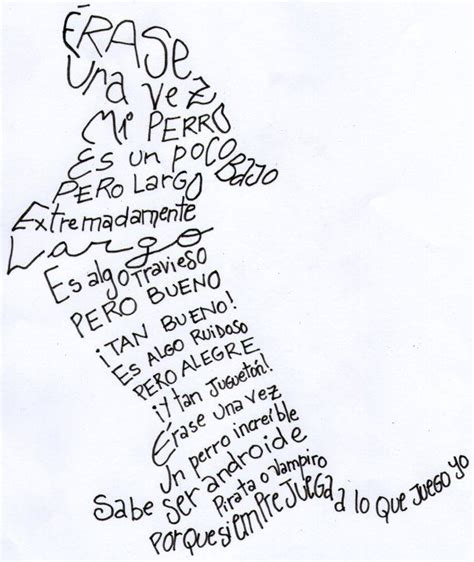 ÉRASE
Una vez
Mi PERRO
Es un poco Bajo
PERO LARGO
Extremadamente
Largo
Es algo travieso
PERO BUENO
¡TAN BUENO!
Es ALGO RUIDOSO
PERO ALEGRE
¡Y tan JUGUETÓN!
Érase una vez
Un perro increíble
Sabe ser androide
Pirata o Vampiro
Porque siEMPRE JUEGA a lo que JUEGO yo